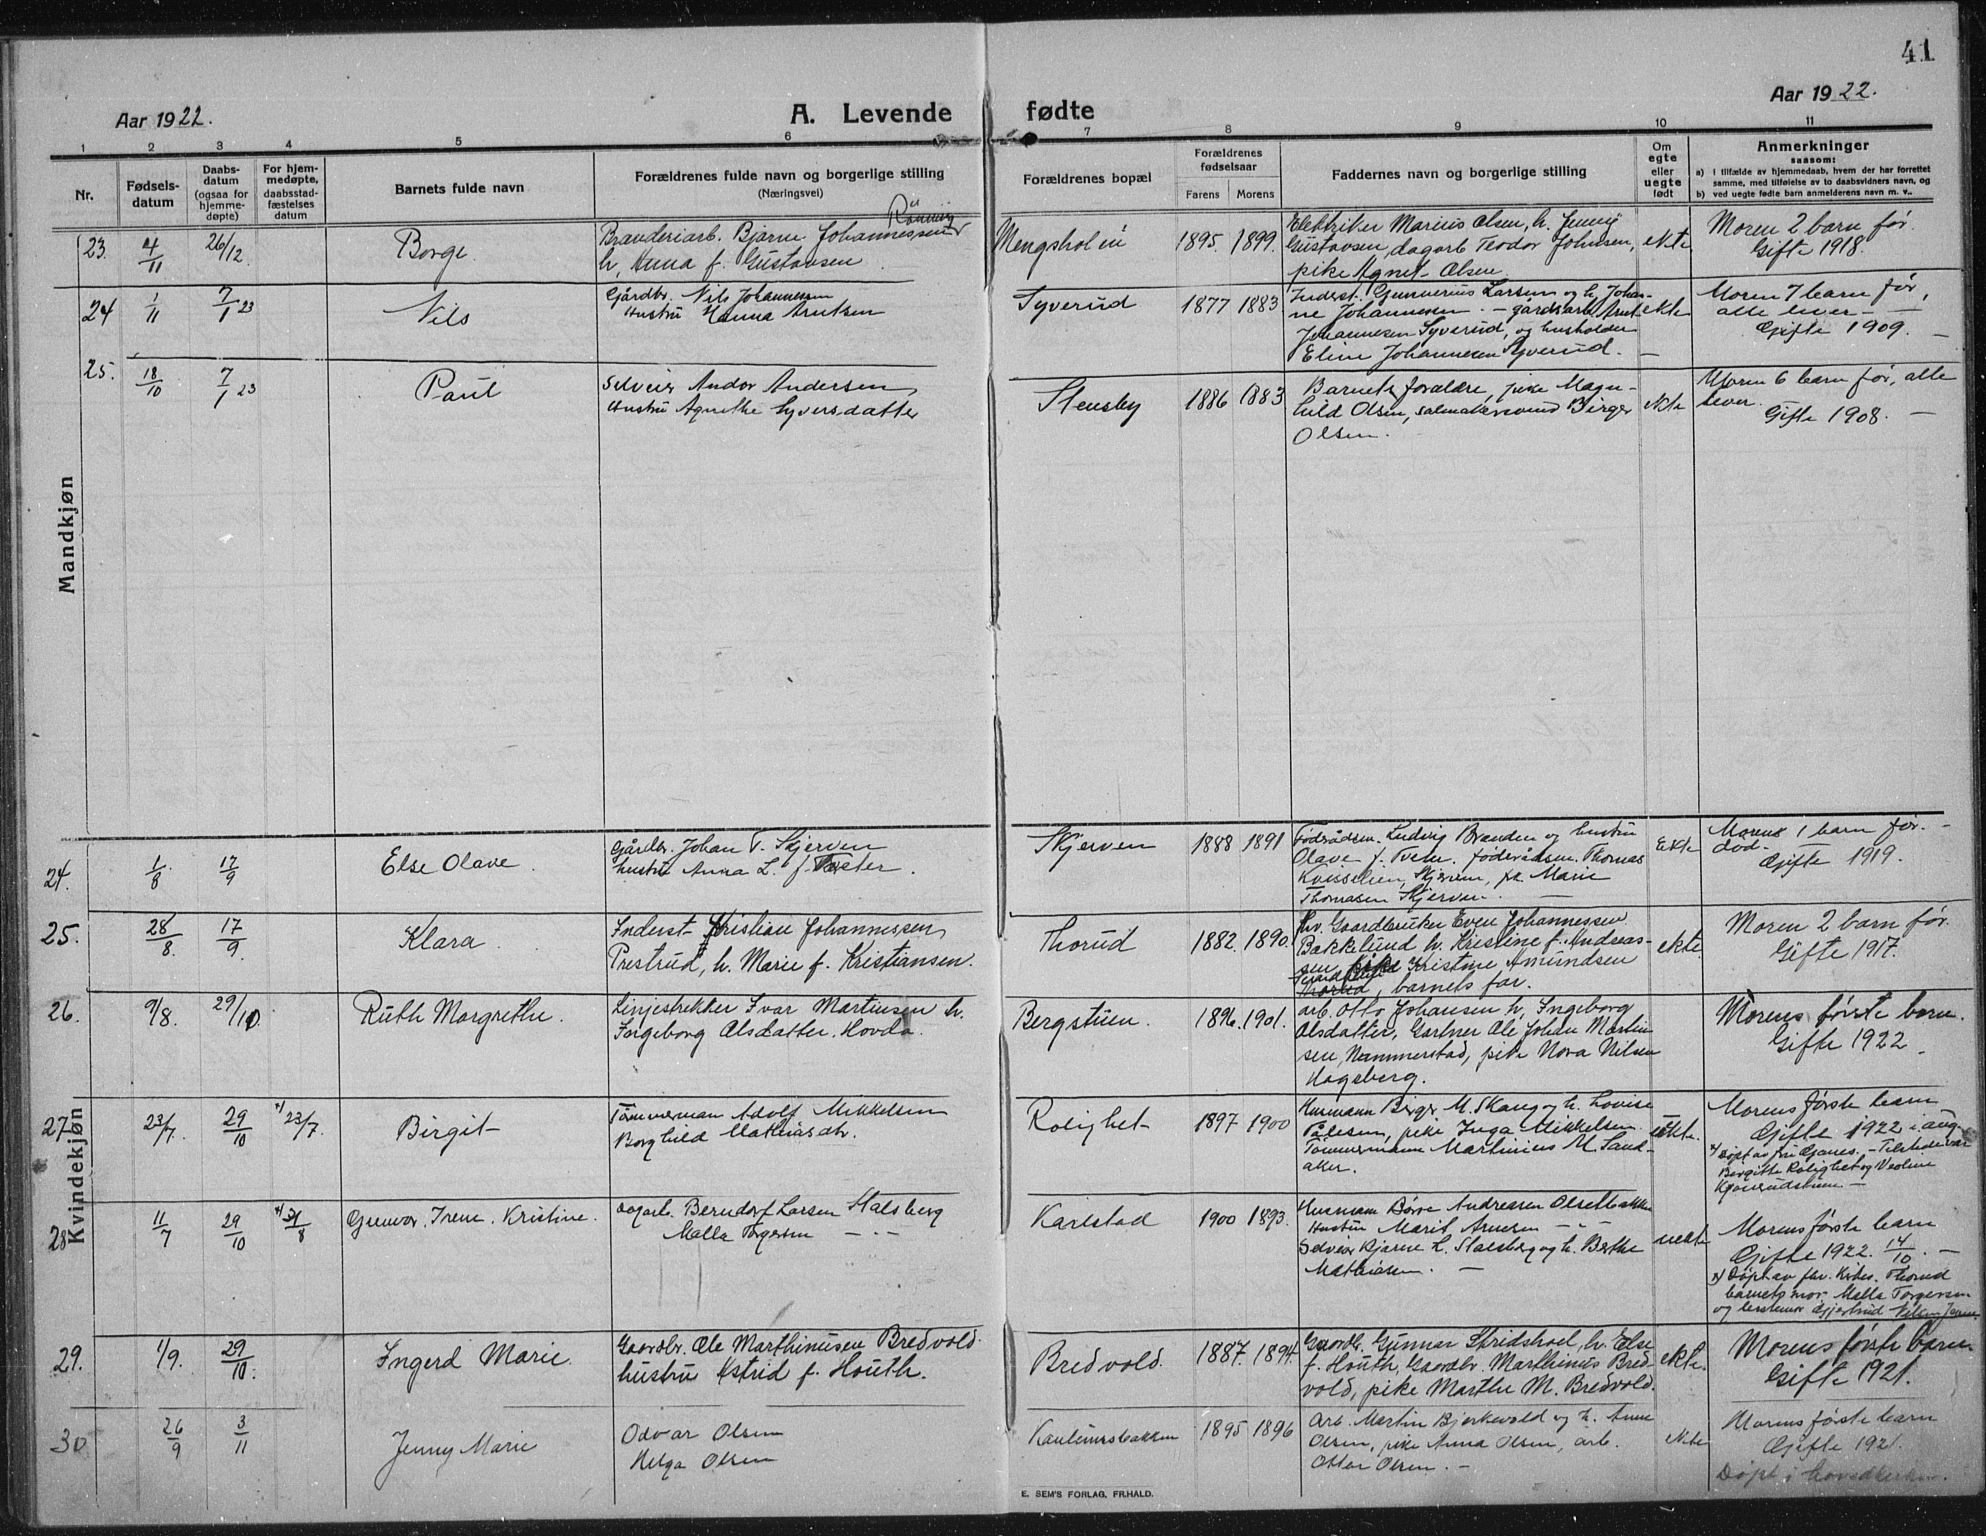 41
Aar 1922.
A. Levende fødte
Aar 1922.
1 2 3 4 5 6 7 8 9 10 11
Nr.
Fødsels-
datum
Daabs-
datum
(ogsaa for
hjemme-
døpte)
For hjem-
medøpte,
daabsstad-
fæstelses
datum
Barnets fulde navn
Forældrenes fulde navn og borgerlige stilling
(Næringsvei)
Forældrenes bopæl
Forældrenes
fødselsaar
Farens Morens
Faddernes navn og borgerlige stilling
Om
egte
eller
uegte
født
Anmerkninger
saasom:
a) I tilfælde av hjemmedaab, hvem der har forrettet
samme, med tilføielse av to daabsvidners navn, og
b) ved uegte fødte barn anmelderens navn m. v..
Mandkjøn
23. 4/11 26/12 Borge.
Brænderiarb. Bjarne Johannessen
h. Anna f. Gustavsen
Mengshol 1895 1899.
Elektriker Marius Olsen, h. Jenny
Gustavsen, dagarb. Teodor Johnsen,
pike Agnet Olsen.
ekte
Moren 2 barn før.
Gifte 1918.
24 1/11 7/1 23 Nils
Gårdbr. Nils Johannessen
Hustru Hanna Arntsen
Syverud 1877 1883
Inderst. Gunnerius Larsen og h. Johan-
ne Johannesen. – gårdsarb. Arnt
Johannesen Syverud, og husholder
Eline Johannesen Syverud. –
ekte
Moren 7 barn før,
alle lever –
Gifte 1909. –
25. 18/10 7/1 23 Paul
Selveier Andor Andersen
Hustru Agnethe Syversdatter
Stensby 1886 1883
Barnets forældre, pike Magn-
hild Olsen, salmakersvend Birger
Olsen.
ekte
Moren 6 barn før, alle
lever.
Gifte 1908. –
Kvindekjøn
24. 1/8 17/9 Else Olave
Gårdbr. Johan T. Skjerven
hustru Anna L. f.
Skjerven 1888 1891
Føderådsm. Ludvig Branden og hustru
Olave f. Tveter. føderådsm. Thomas
Skjerven, pk. Marie
Thomasen Skjerven. –
Ekte
Moren 1 barn før. –
død. –
Gifte 1919.
25. 28/8. 17/9. Klara
Inderst Kristian Johannessen
Prestrud, h. Marie f. Kristiansen.
Thorud 1882. 1890.
Fhv. Gaardbruker Even Johannessen
Bakkelund h. Kristine f. Andreas-
sen, Kristine Amundsen
, barnets far.
ekte.
Moren 2 barn før.
Gifte 1917.
26. 9/8. 29/10. Ruth Margrethe
Linjestrekker Ivar Martinsen h.
Ingeborg Olsdatter. Hovda.
Bergstuen. 1896. 1901.
arb. Otto Johansen h. Ingeborg
Olsdatter, Gartner Ole Johan Martin
sen, Nammerstad, pike Nora Nilsen
Hagsberg.
Morens første barn.
Gifte 1922.
27 23/7. 29/10 x) 23/7. Birgit
Tømmerman Adolf Mikkelsen
Borghild Mathiasdtr.
Rolighet 1897 1900
Husmann Birger M. Skaug og h. Lovise
Pålesen, pike Inga Mikkelsen.
Tømmermann Martinius M. Sand-
aker.
uekte.
Morens første barn
Gifte 1922 i aug.
x) Døpt av – Tilstede var
Birgitte Rolighet og Veoline
28 11/7 29/10 Gunvor Irene Kristine.
dagarb. Berndorf Larsen Stalsberg
Malla Torgersen – " –
Karlstad 1900 1893.
Husmann Børre Andreasen Olsetbakken
Hustru Marit Arnesen – " –
Selveier Bjarne L. Stalsberg og h. Berthe
Mathiasen. –
uekte
Morens første barn
Gifte 1922. 14/10. –
x) Døpt av fhv. Kirkes. Thorud
barnets mor Malla Torgersen
og Gjertrud
29. 1/9. 29/10. Ingerd Marie.
Gaardbr. Ole Marthinusen Bredvold.
hustru Astrid f. Houth.
Bredvold. 1887. 1894.
Gaardbr. Gunnar Stridshoel, h. Else
f. Houth, Gaardbr. Marthinus Bred-
vold, pike Marthe M. Bredvold.
ekte.
Morens første barn
Gifte 1921.
30 26/9 3/11 Jenny Marie
Odvar Olsen
Helga Olsen
1895 1896
Arb. Martin Bjerkevold og h. Anne
Olsen, pike Anna Olsen, arb.
Ottar Olsen. –
ekte
Morens første barn
Gifte 1921.
Døpt i hovedkirken.
E. SEM'S FORLAG, FR.HALD.